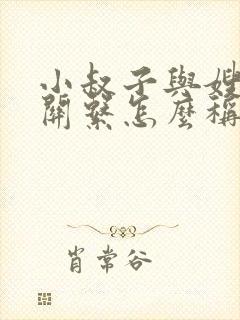 小叔子與嫂
關繫怎麼稱
肖常谷